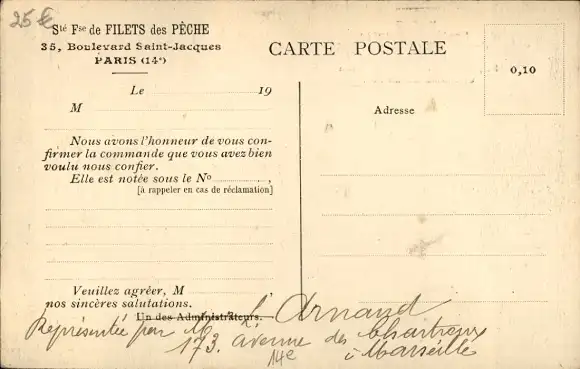 25 €
Sté Fse de FILETS des PÊCHE
35, Boulevard Saint-Jacques
PARIS (14e)
Le 19
M
Nous avons l'honneur de vous con-
firmer la commande que vous avez bien
voulu nous confier.
Elle est notée sous le No ,
[à rappeler en cas de réclamation]
Veuillez agréer, M
nos sincères salutations.
Un des Administrateurs.
CARTE POSTALE
0,10
Adresse
Représentée par M. L. Arnaud
173. avenue des Chartreux
14e à Marseille